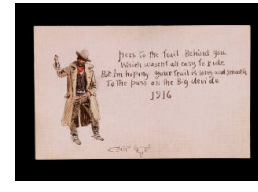 Heres to the trail Behind you
Which wasent all easy to ride
But Im hoping your trail is long and smooth
To the pass on the Big devide
1916